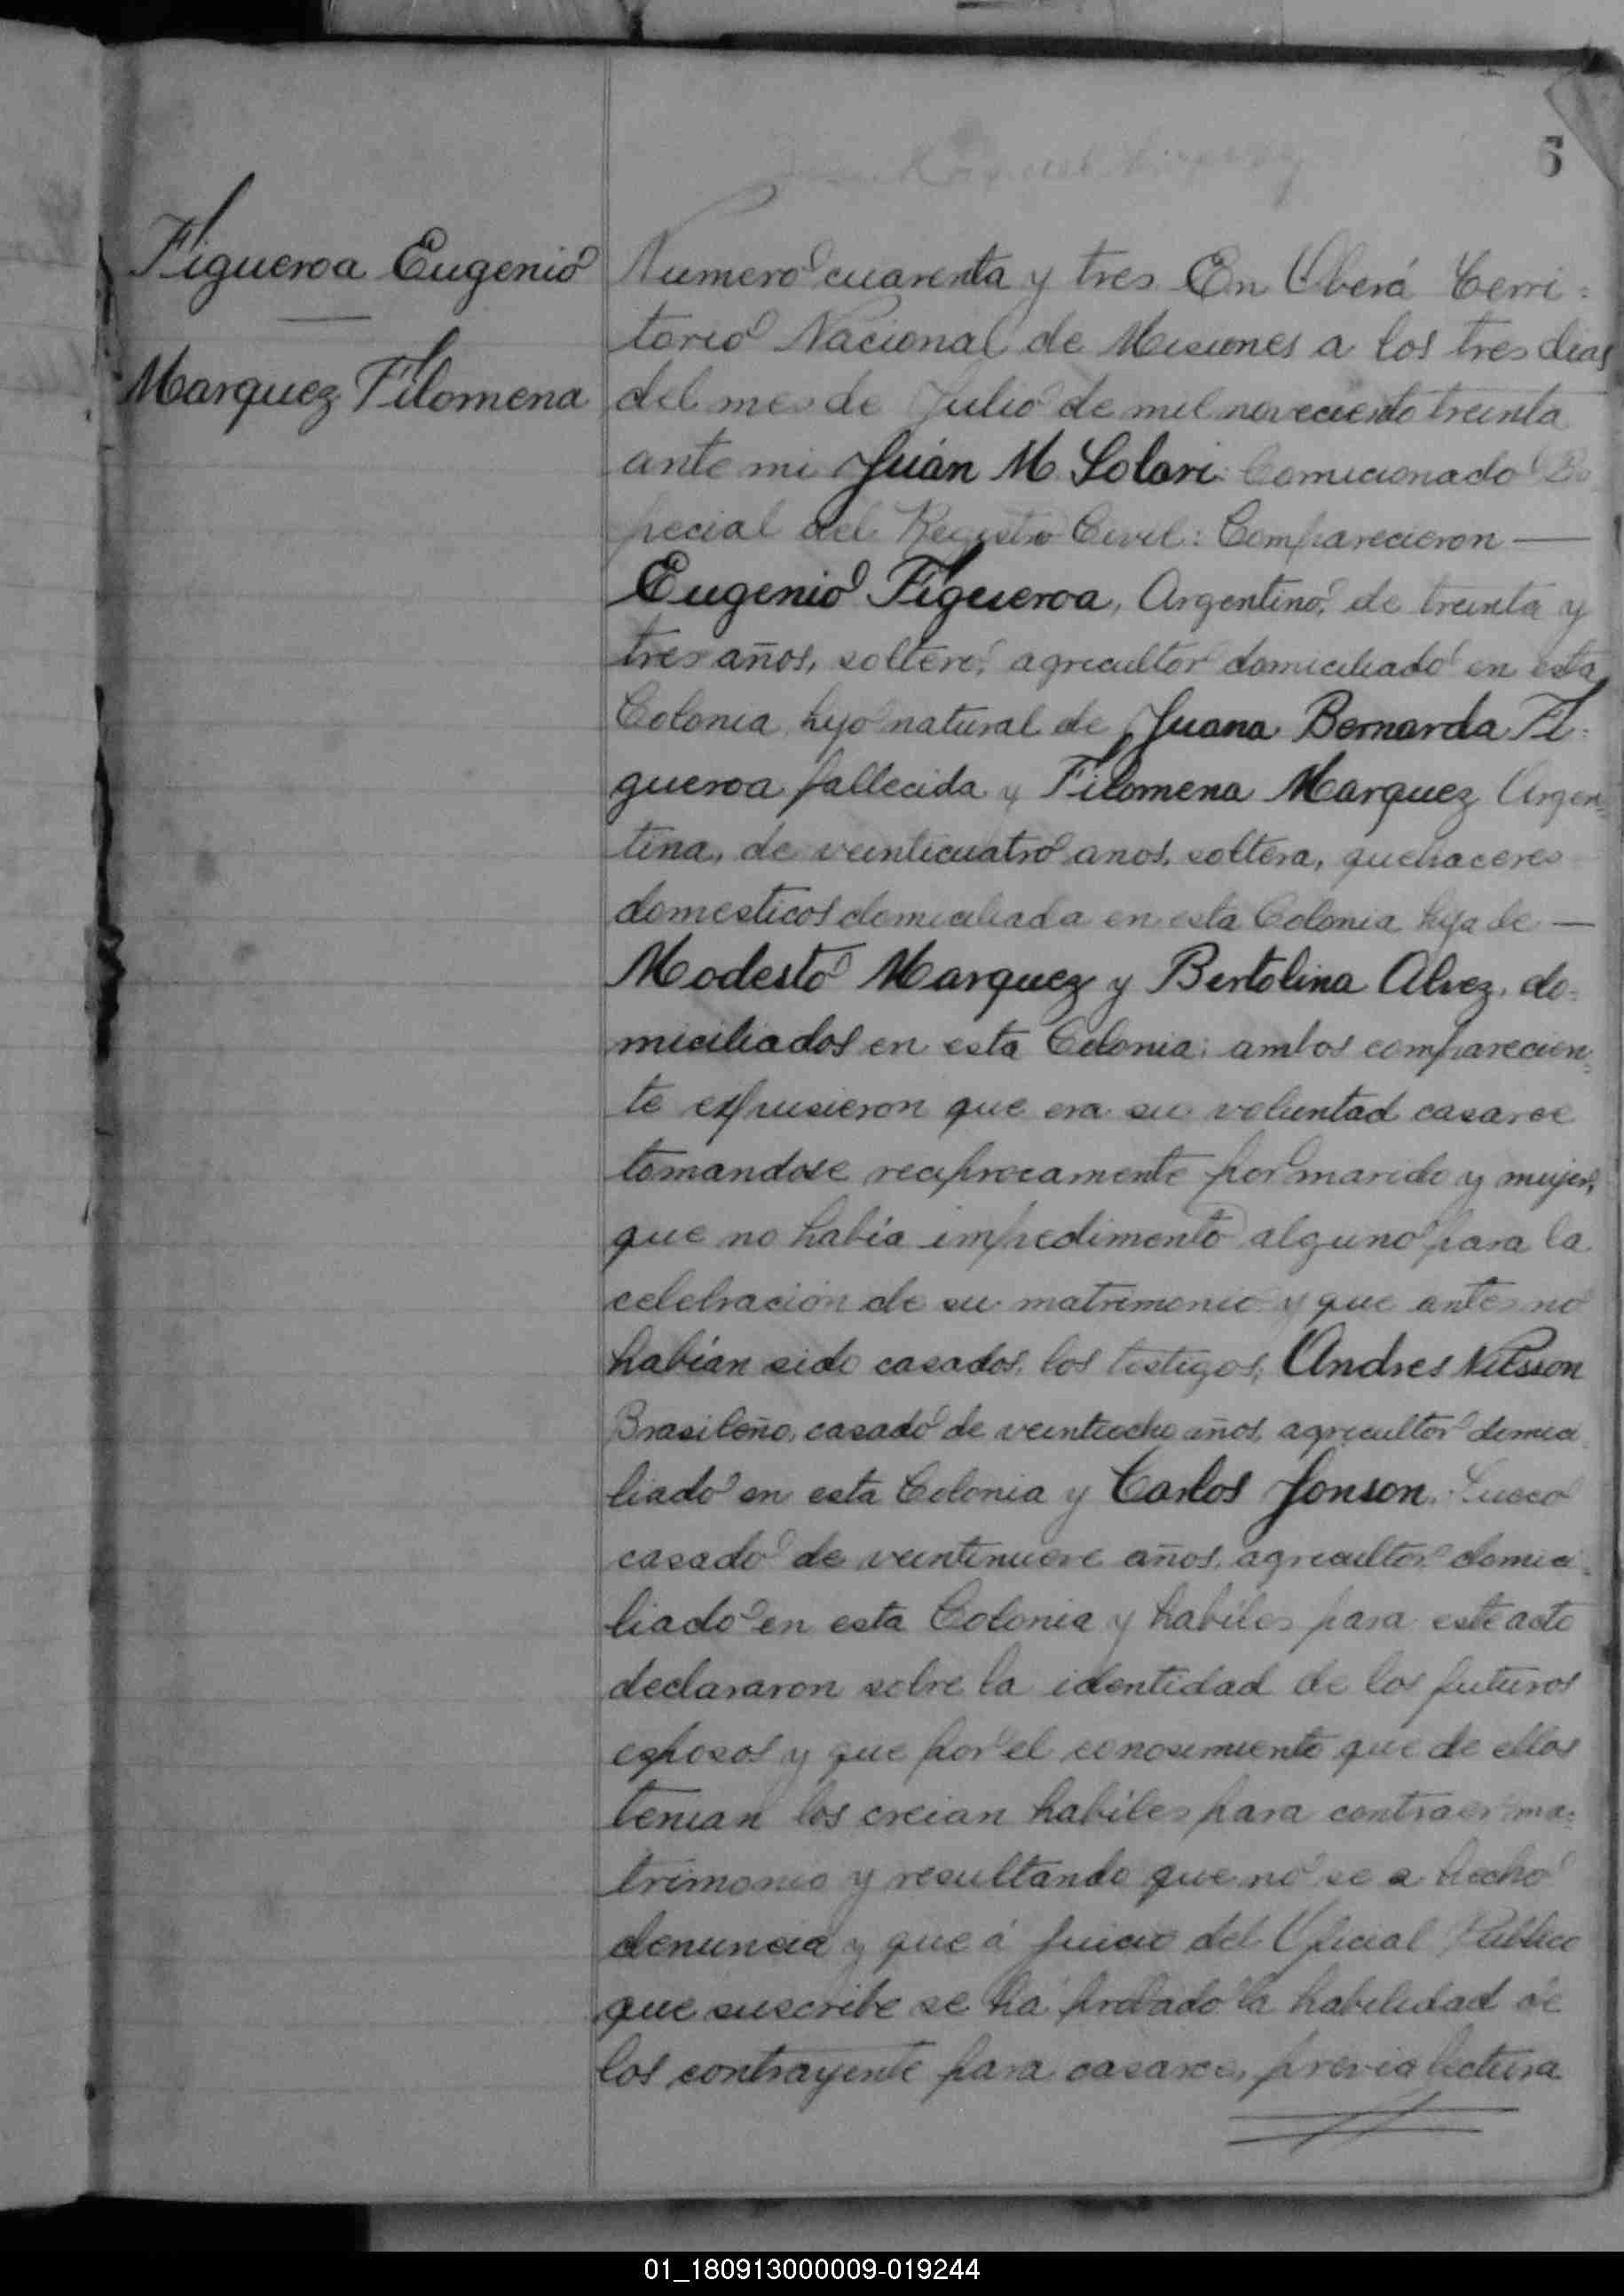 6
Figueroa Eugenio
Marquez Filomena
Numero cuarenta y tres En Oberá Terri=
torio Nacional de Misiones a los tres dias
del mes de Julio de mil noveciento treinta
ante mi Juán M. Solari Comicionado Es
pecial del Registro Civil: Comparecieron —
Eugenio Figueroa, Argentino, de treinta y
tres años, soltero, agricultor domiciliado en esta
Colonia hijo natural de Juana Bernarda Fi=
gueroa fallecida y Filomena Marquez Argen=
tina, de veinticuatro anos, soltera, quehaceres
domesticos domiciliada en esta Colonia hija de —
Modesto Marquez y Bertolina Alvez, do=
miciliados en esta Colonia; ambos comparecien=
te expusieron que era su voluntad casarce
tomandose reciprocamente por marido y mujer,
que no había impedimento alguno para la
celebración de su matrimonio y que antes no
habían sido casados, los testigos, Andres Nilsson
Brasileño, casado de veintiocho años, agricultor domici
liado en esta Colonia y Carlos Jonson, Sueco
casado de veintinueve años, agricultor domici=
liado en esta Colonia y habiles para este acto
declararon sobre la identidad de los futuros
esposos y que por el conosimiento que de ellos
tenian los creian habiles para contraer ma=
trimonio y resultando que no se a hecho
denuncia y que á juicio del Oficial Publico
que suscribe se ha probado la habilidad de
los contrayente para casarce, previa lectura
01_180913000009-019244